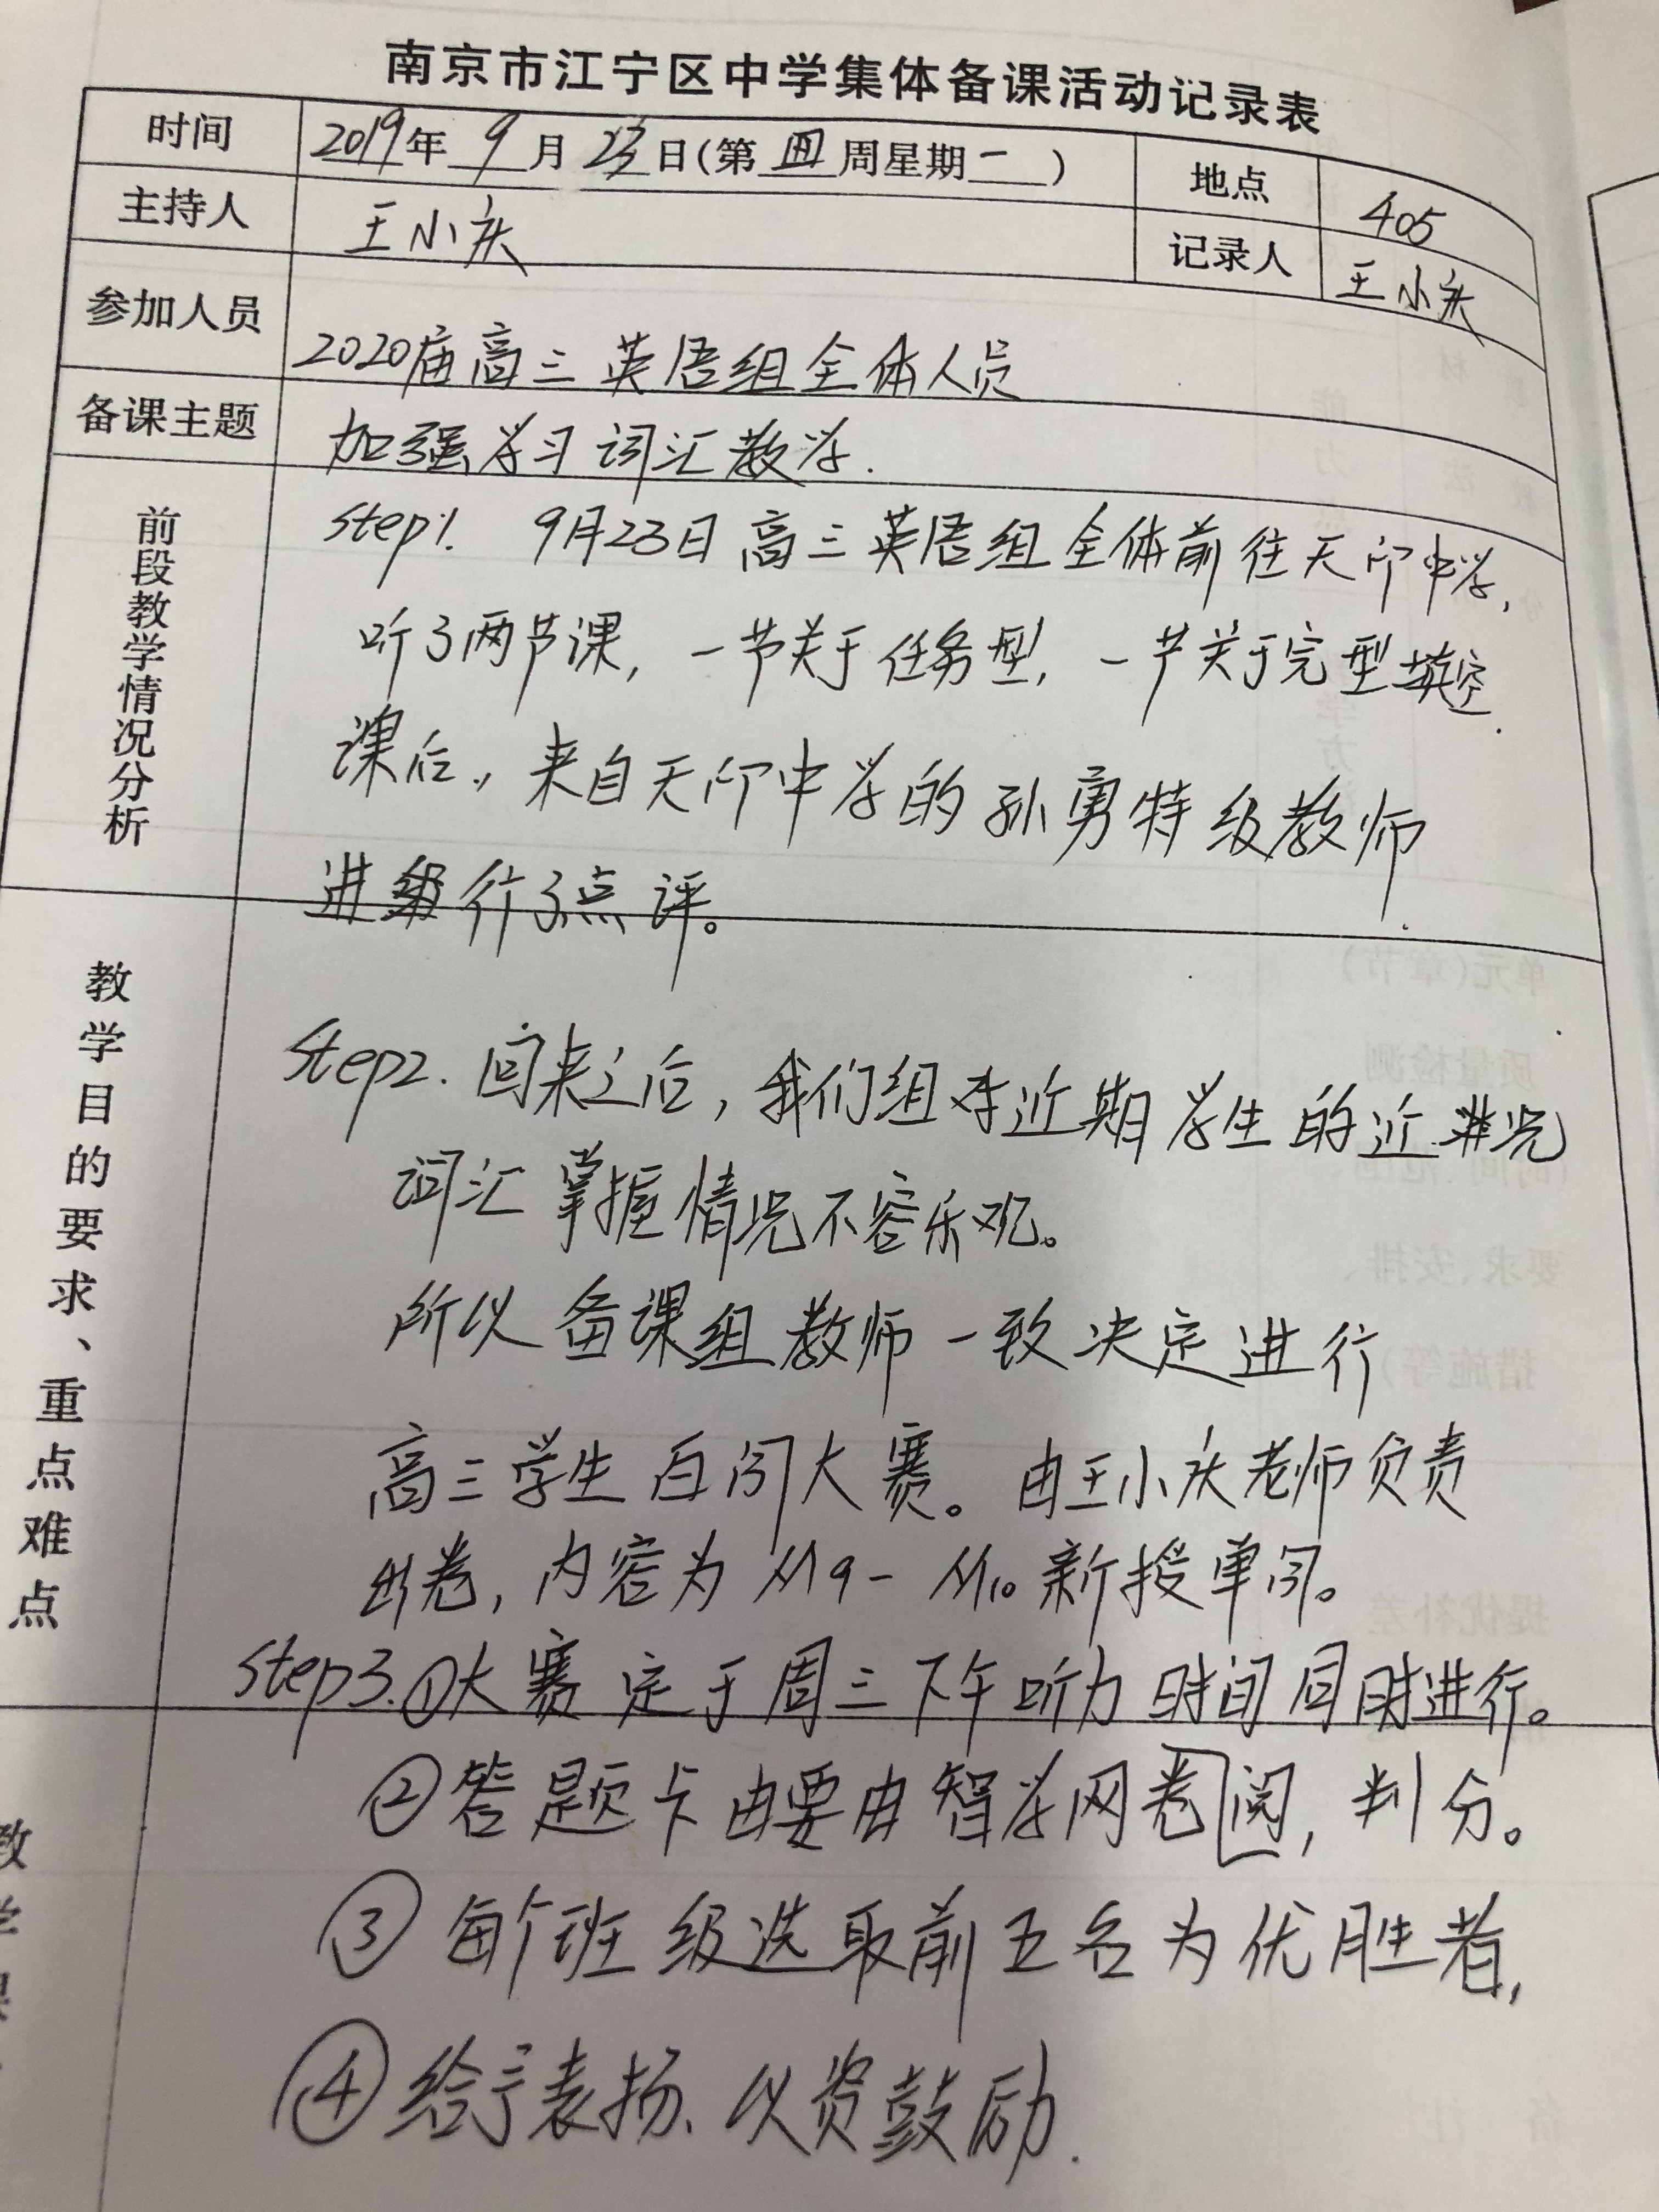 南京市江宁区中学集体备课活动记录表
时间 2019年 9 月 23 日(第 四 周星期 一 ) 地点 405
主持人 王小庆 记录人 王小庆
参加人员 2020届高三英语组全体人员
备课主题 加强学习词汇教学.
前段教学情况分析
step1. 9月23日高三英语组全体前往天印中学,
听了两节课, 一节关于任务型, 一节关于完型填空.
课后, 来自天印中学的孙勇特级教师
进行了点评。
教学目的要求、重点难点
step2. 回来之后, 我们组对近期学生的近况
词汇掌握情况不容乐观。
所以备课组教师一致决定进行
高三学生百词大赛。由王小庆老师负责
出卷, 内容为M9-M10新授单词。
step3.①大赛定于周三下午听力时间同时进行。
②答题卡由要由智学网阅卷, 判分。
③每个班级选取前五名为优胜者,
④给予表扬、以资鼓励.